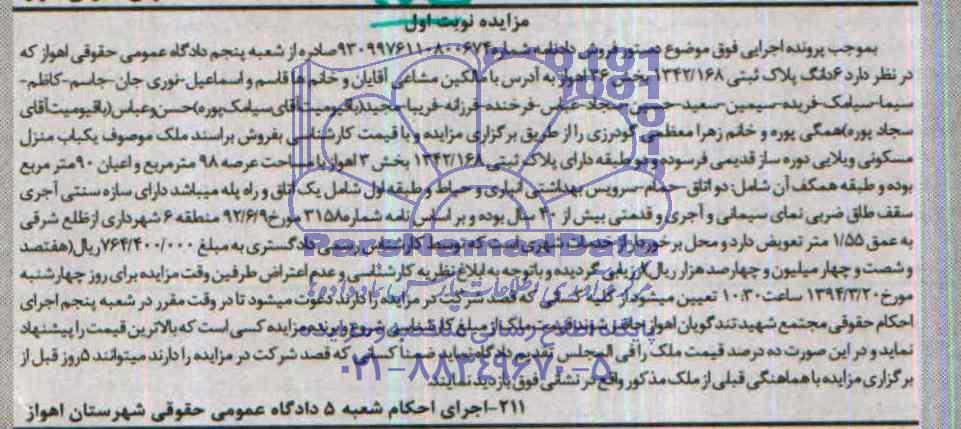 مزایده نوبت اول
بموجب پرونده اجرایی فوق موضوع دستور فروش دادنامه شماره ۹۳۰۹۹۷۶۱۱۰۸۰۰۶۷۴ صادره از شعبه پنجم دادگاه عمومی حقوقی اهواز که
در نظر دارد ۶دانگ پلاک ثبتی ۱۳۴۲/۱۶۸ بخش ۳۶ اهواز به آدرس با مالکین مشاعی آقایان و خانم ها قاسم و اسماعیل-نوری جان-جاسم-کاظم-
سیما-سیامک-فریده-سیمین-سعید-حسین-سجاد-عباس-فرخنده-فرزانه-فریبا-مجید(باقیومیت آقای سیامک پوره)حسن وعباس(باقیومیت آقای
سجاد پوره)همگی پوره و خانم زهرا معظمی گودرزی را از طریق برگزاری مزایده و با قیمت کارشناسی بفروش براسند ملک موصوف یکباب منزل
مسکونی ویلایی دوره ساز قدیمی فرسوده و دوطبقه دارای پلاک ثبتی ۱۳۴۲/۱۶۸ بخش ۳ اهواز با مساحت عرصه ۹۸ مترمربع و اعیان ۹۰ متر مربع
بوده و طبقه همکف آن شامل: دو اتاق-حمام-سرویس بهداشتی انباری و حیاط و طبقه اول شامل یک اتاق و راه پله میباشد دارای سازه سنتی آجری
سقف طاق ضربی نمای سیمانی و آجری و قدمتی بیش از ۴۰ سال بوده و بر اساس نامه شماره۳۱۵۸ مورخ۹۲/۶/۹ منطقه ۶ شهرداری ازظلع شرقی
به عمق ۱/۵۵ متر تعویض دارد و محل برخوردار از خدمات شهری است که توسط کارشناس رسمی دادگستری به مبلغ ۷۶۴/۴۰۰/۰۰۰ریال(هفتصد
و شصت و چهار میلیون و چهارصد هزار ریال)ارزیابی گردیده و باتوجه به ابلاغ نظریه کارشناسی و عدم اعتراض طرفین وقت مزایده برای روز چهارشنبه
مورخ۱۳۹۴/۳/۲۰ ساعت۱۰:۳۰ تعیین میشود از کلیه کسانی که قصد شرکت در مزایده را دارند دعوت میشود تا در وقت مقرر در شعبه پنجم اجرای
احکام حقوقی مجتمع شهید تندگویان اهواز حاضر شوند قیمت ملک از مبلغ کارشناسی شروع و برنده مزایده کسی است که بالاترین قیمت را پیشنهاد
نماید و در این صورت ده درصد قیمت ملک را فی المجلس تقدیم دادگاه نماید ضمنا کسانی که قصد شرکت در مزایده را دارند میتوانند ۵روز قبل از
برگزاری مزایده با هماهنگی قبلی از ملک مذکور واقع در نشانی فوق بازدید نمایند
۲۱۱-اجرای احکام شعبه ۵ دادگاه عمومی حقوقی شهرستان اهواز
ParsNamadData
۰۲۱-۸۸۳۴۹۶۷۰-۵